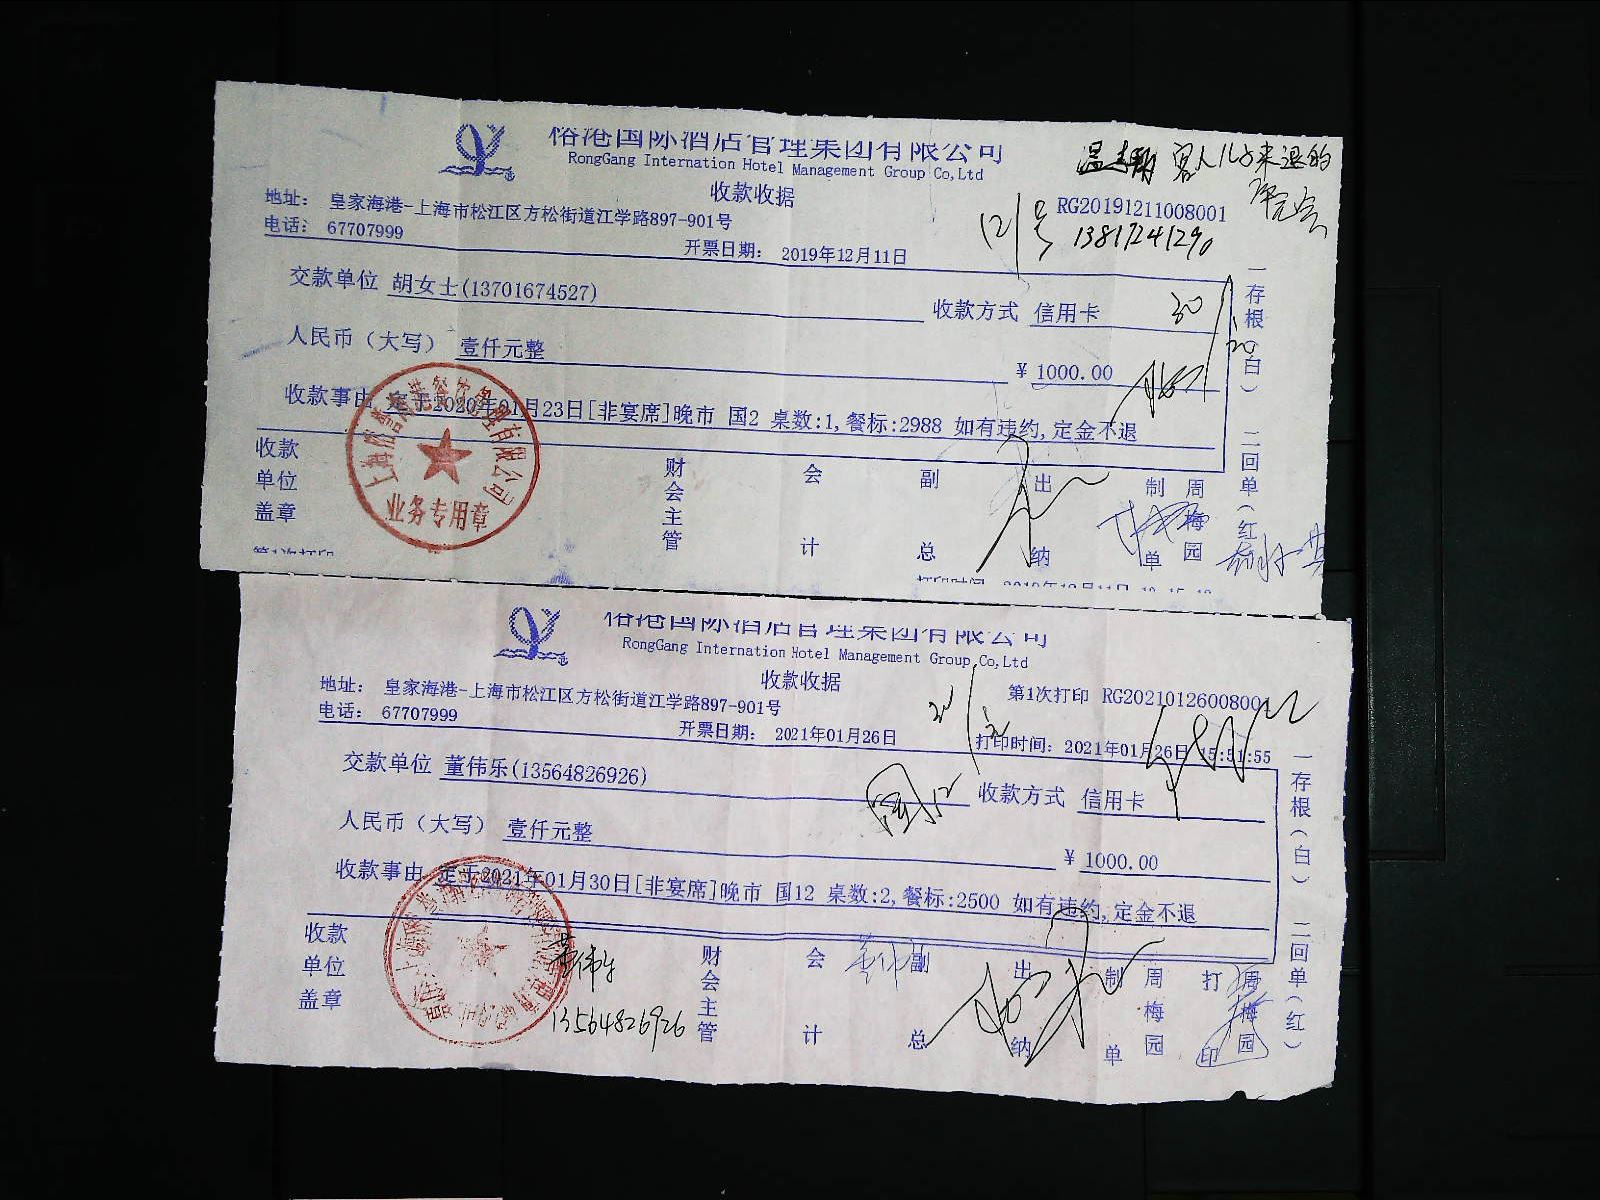 国际酒店管理集团有限公司
RongGang Internation Hotel Management Group Co,Ltd
客人儿子来退的
收款收据
地址: 皇家海港-上海市松江区方松街道江学路897-901号
RG20191211008001
电话: 67707999
开票日期: 2019年12月11日
121号
13817241290
交款单位 胡女士(13701674527)
收款方式 信用卡
30
人民币（大写） 壹仟元整
¥ 1000.00
收款事由 定于2020年01月23日[非宴席]晚市 国2 桌数:1,餐标:2988 如有违约,定金不退
收款单位盖章
财会主管
会计
副总
出纳
制单
周梅园
一存根(白) 二回单(红
业务专用章
第1次打印
打印时间
国际酒店管理集团有限公司
RongGang Internation Hotel Management Group Co,Ltd
收款收据
地址: 皇家海港-上海市松江区方松街道江学路897-901号
第1次打印 RG20210126008001
电话: 67707999
开票日期: 2021年01月26日
打印时间: 2021年01月26日 15:51:55
交款单位 董伟乐(13564826926)
国12
收款方式 信用卡
人民币（大写） 壹仟元整
¥ 1000.00
收款事由 定于2021年01月30日[非宴席]晚市 国12 桌数:2,餐标:2500 如有违约,定金不退
收款单位盖章
董伟乐
13564826926
财会主管
会计
副总
出纳
制单
周梅园
打印
周梅园
一存根(白) 二回单(红)